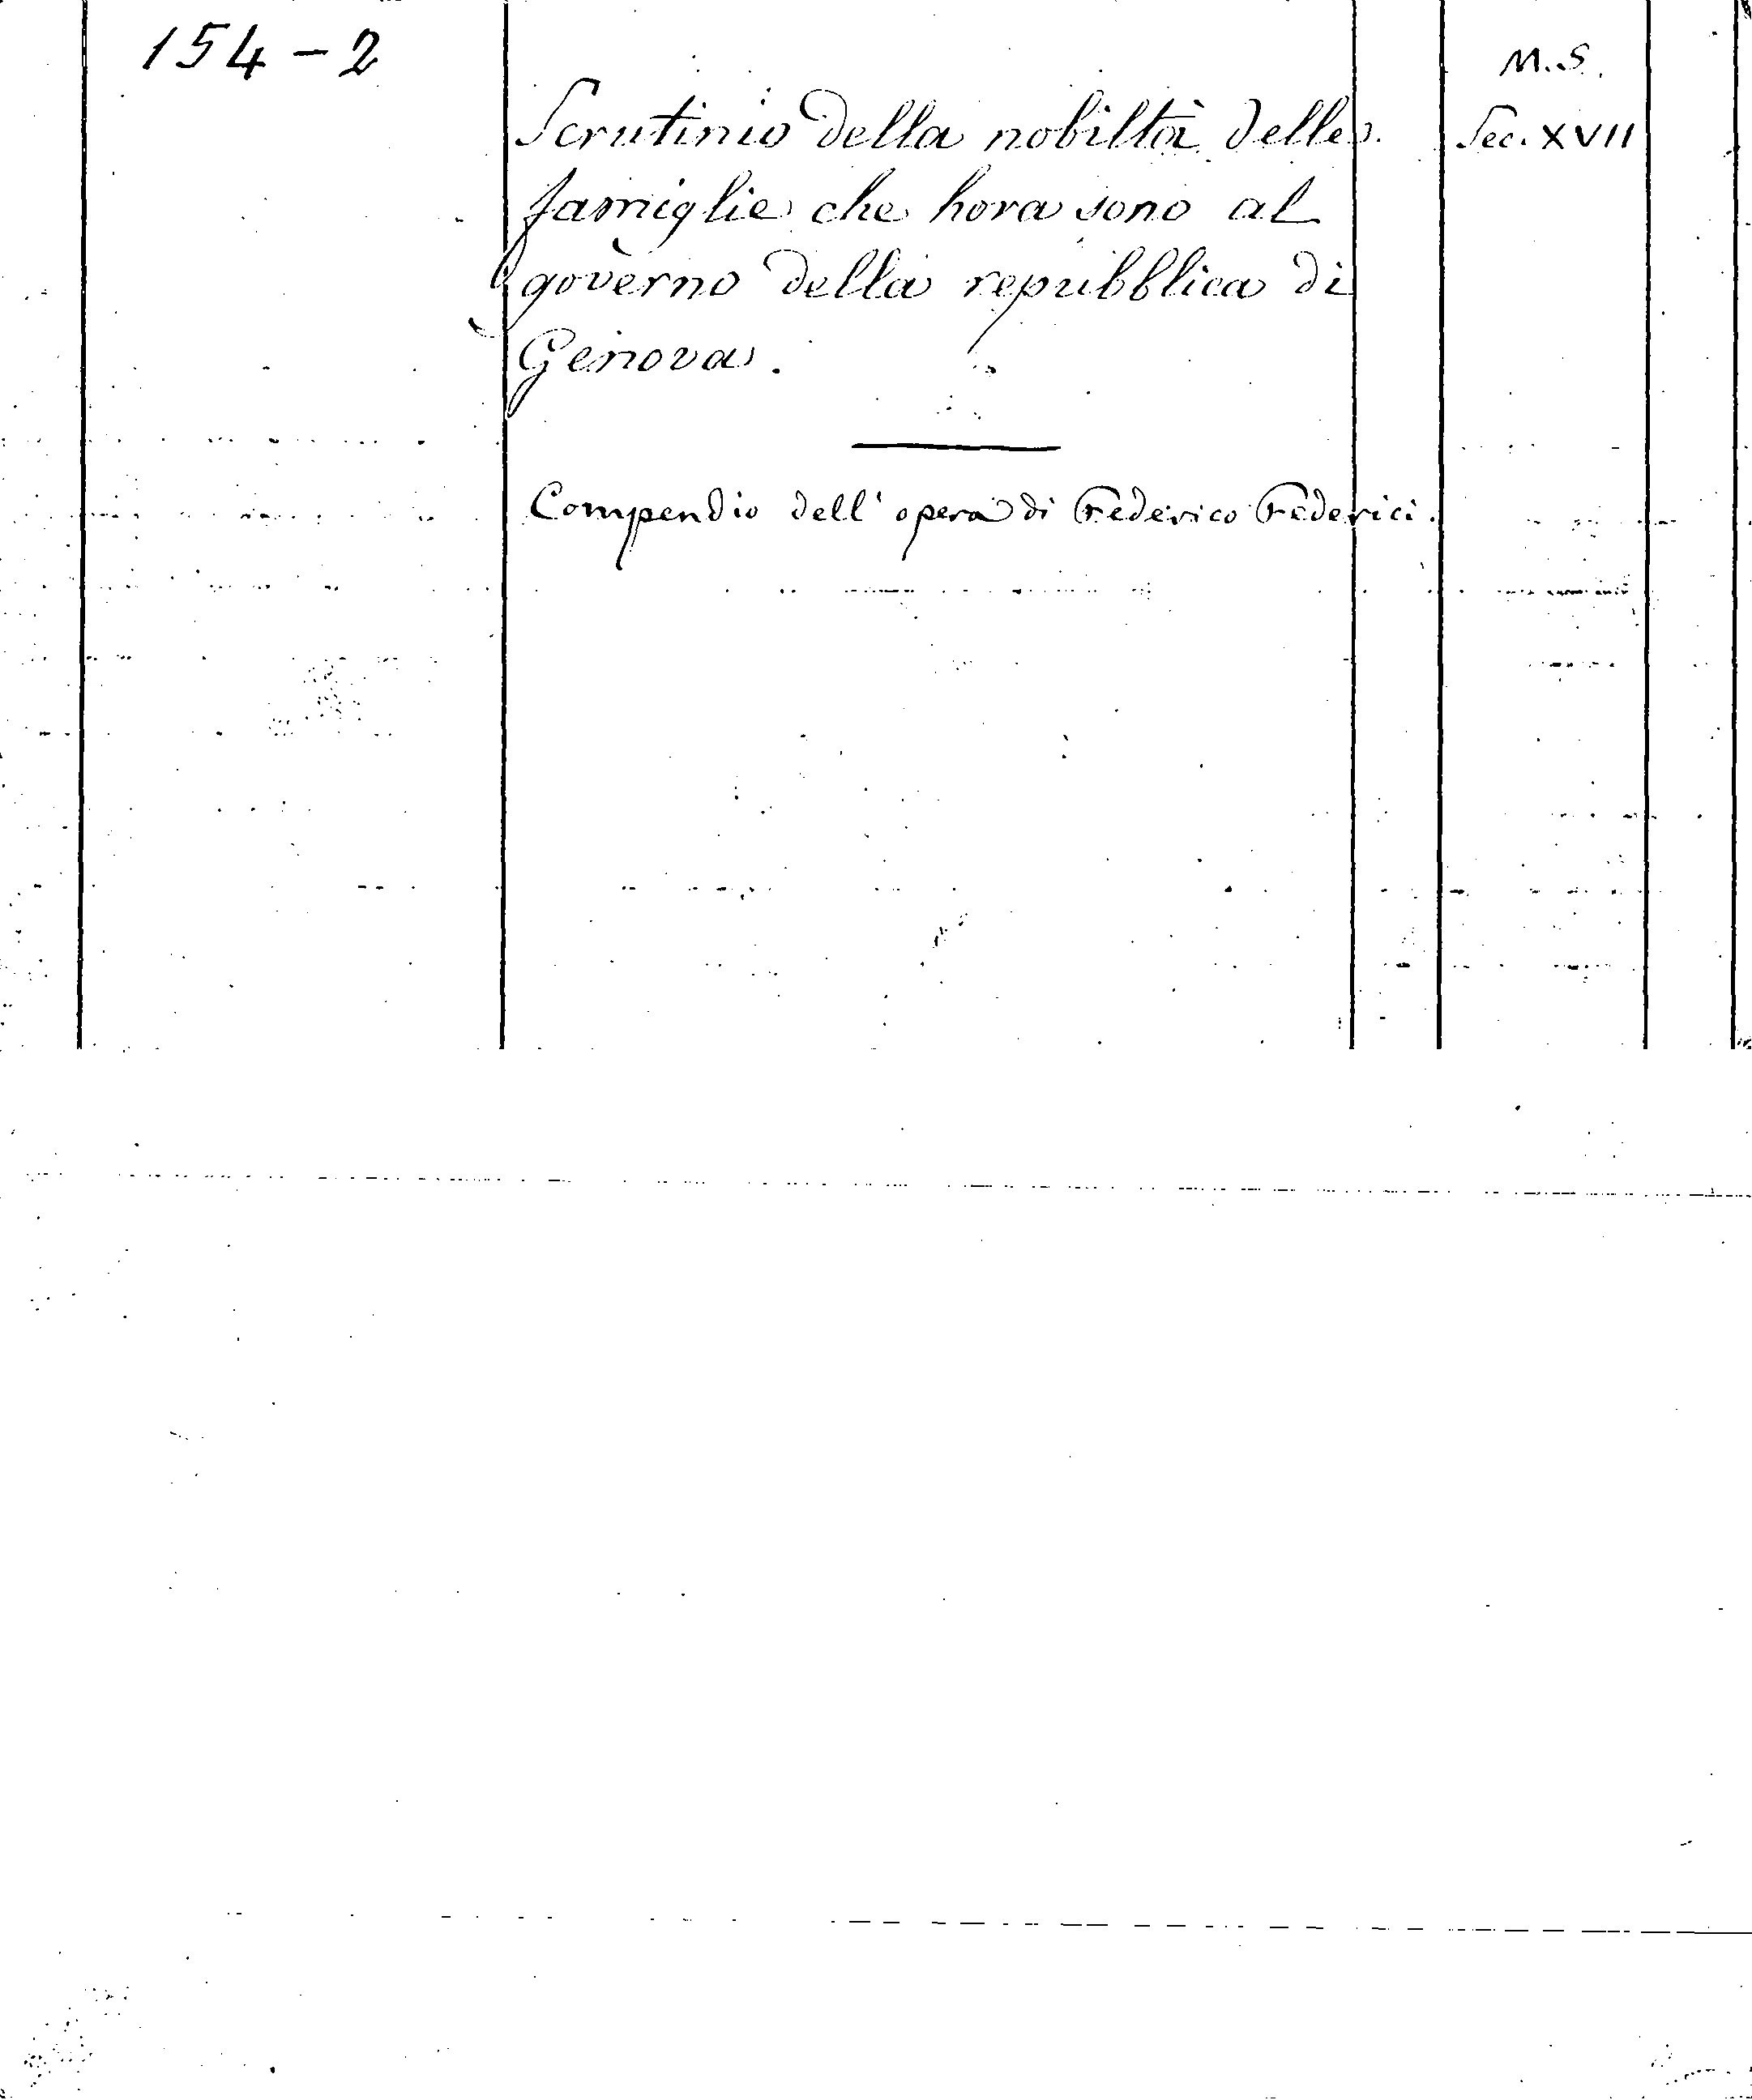 154-2
M.S.
Scrutinio della nobiltà delle
Sec. XVII
famiglie che hora sono al
governo della repubblica di
Genova.
Compendio dell'opera di Federico Federici.